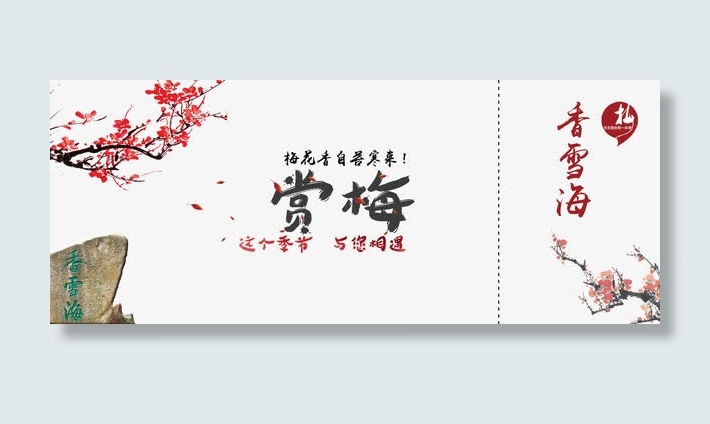 梅花香自苦寒来！
赏梅
这个季节 与您相遇
香雪海
香雪海